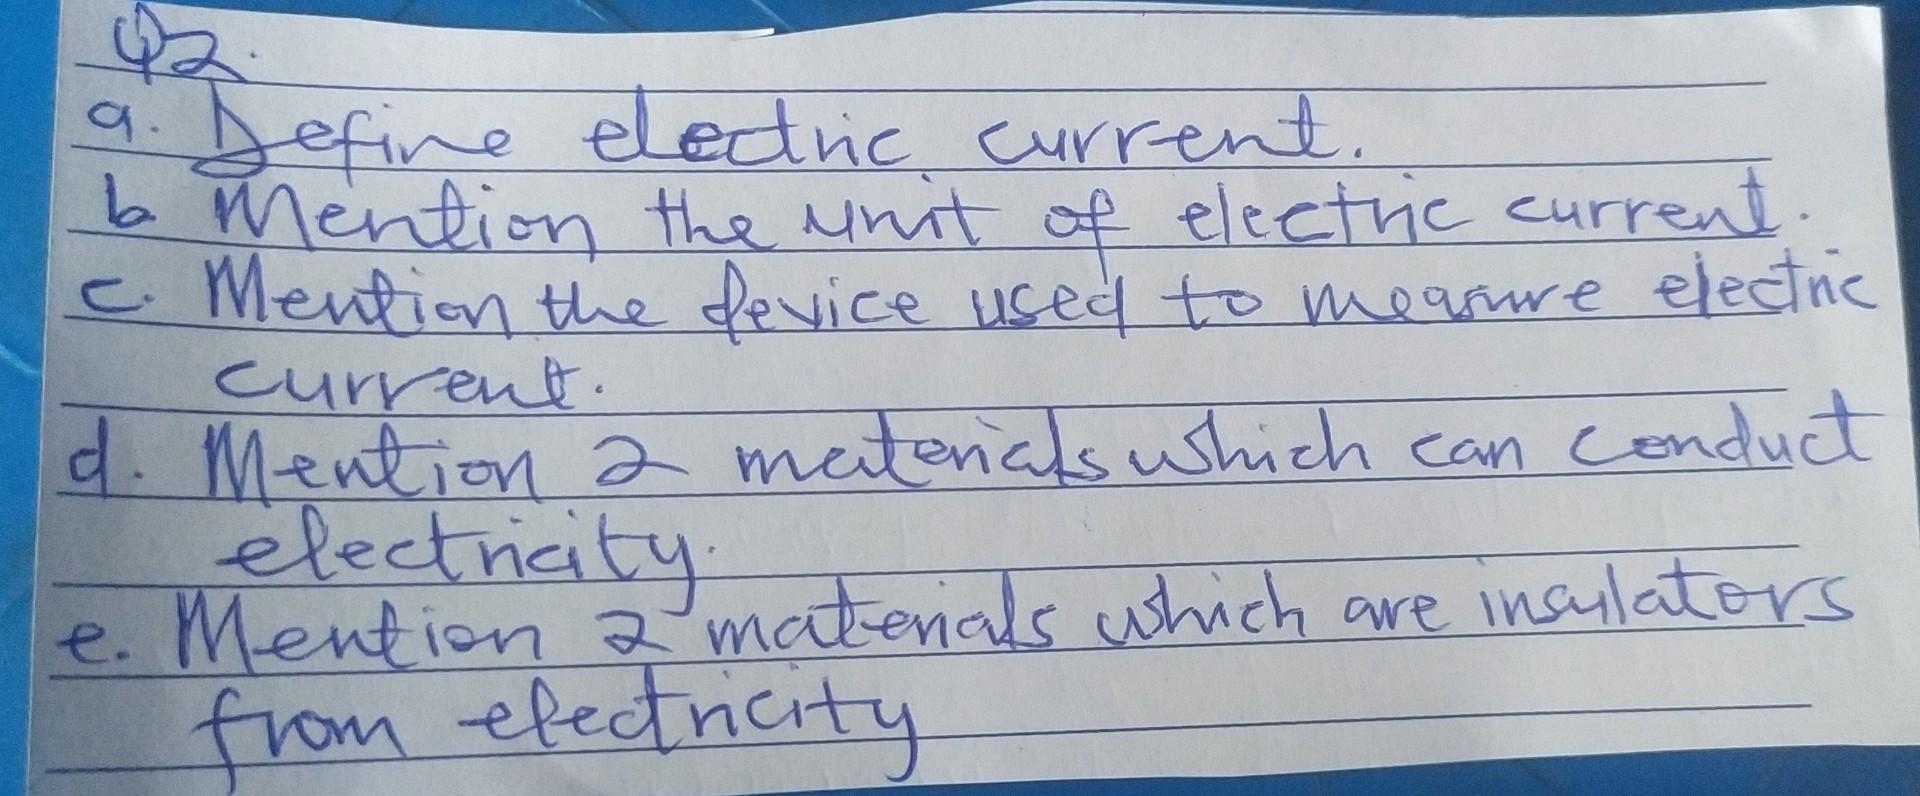 Q2.
a. Define electric current.
b Mention the unit of electric current.
c. Mention the device used to measure electric
current.
d. Mention 2 materials which can conduct
electricity.
e. Mention 2 materials which are insulators
from electricity